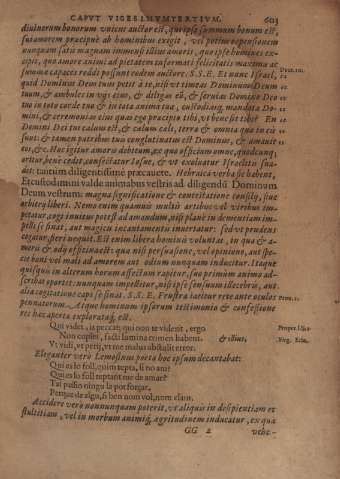 CAPVT VIGESIMVMTERTIVM. 603
diuinorum bonorum vnicus auctor est, qui ipse summum bonum est,
suiamorem præcipuè ab hominibus exigit, vt potius expensionem
nunquam satis magnam immensi illius amoris, quo ipse homines ex-
cipit, quo amore animi ad pietatem informati felicitatis maxima ac
summa capaces reddi possunt eodem auctore. S.S.E. Et nunc Israel,
quid Dominus Deus tuus petit à te, nisi vt timeas Dominum Deum
tuum, & ambules in vijs eius, & diligas eū, & seruias Domino Deo
tuo in toto corde tuo & in tota anima tua, custodiasq; mandata Do-
mini, & ceremonias eius quas ego præcipio tibi, vt bene sit tibi? En
Domini Dei tui cælum est, & cælum cæli, terra & omnia quæ in eis
sunt: & tamen patribus tuis conglutinatus est Dominus, & amauit
eos, &c. Hoc igitur amoris debitum, ex quo officium omne, quodcunq;
ortur, benè cedit, confectatur Iosue, & vt exaluatur Israelitis sua-
det: tantùm diligentissimè præcauete. Hebraica verba sic habent,
Et custodimini valde animabus vestris ad diligendū Dominum
Deum vestrum: magna significatione & contestatione consilij, siue
arbitrij liberi. Nemo enim quamuis multis artibus ad viribus im-
petatur, cogi inuitus potest ad amandum, nisi planè in dementiam im-
pelli se sinat, aut magicu incantamentis inuertatur: sed vt prudens
cogatur, fieri nequit. Est enim libera hominis voluntas, in qua & a-
moris & odij est
quisquis in alterum horum affectum rapitur, suo primùm animo ad-
scribat oportet: nunquam impellitur, nisi ipse sensuum illecebris, aut
alia cogitatione capi se sinat. S.S.E. Frustra iacitur rete ante oculos
pennatorum. Atque hominum ipsorum testimonio & confessione
res hæc aperta explorataq́; est.
Qui videt, is peccat: qui non te viderit, ergo
Non cupiet, facti lumina crimen habent. & illius,
Vt vidi, vt perij, vt me malus abstulit error.
Eleganter verò Lemosinus poeta hoc ipsum decantabat:
Qui es lo foll, quim tepta, si no am?
Qui es lo foll
Tal passio ningu la pot forçar,
Perque de algu, si ben non vol, nom clam.
Accidere verò nonnunquam poterit, vt aliquis in desipientiam et
stultitiam, vel in morbum animiq́; ægritudinem inducatur, ex qua
GG 2 vehe-
Deut. 10.
Prou. 1.
Propert. lib. 2.
Virg. Eclo.